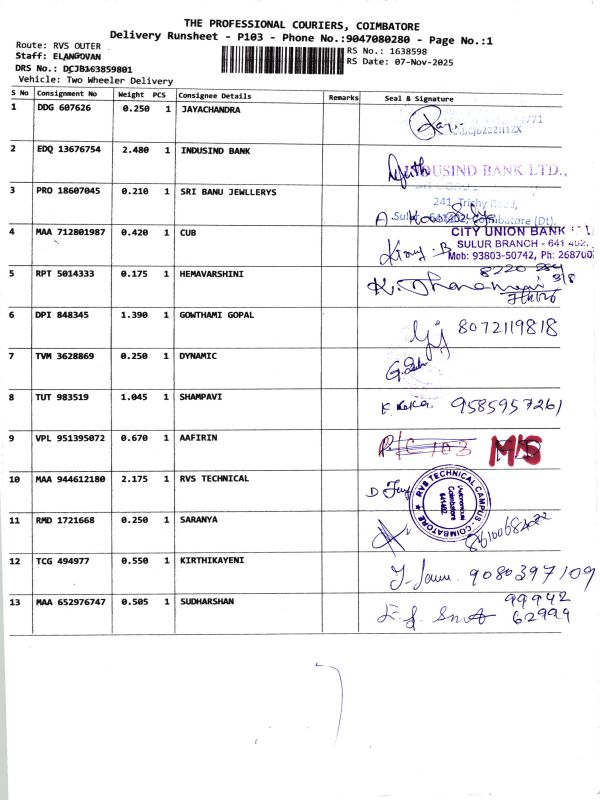 THE PROFESSIONAL COURIERS, COIMBATORE
Delivery Runsheet - P103 - Phone No.:9047080280 - Page No.:1
Route: RVS OUTER
Staff: ELANGOVAN
DRS No.: DCJB103859801
Vehicle: Two Wheeler Delivery
RS No.: 1638598
RS Date: 07-Nov-2025
S No Consignment No Weight PCS Consignee Details Remarks Seal & Signature
1 DDG 607626 0.250 1 JAYACHANDRA
2 EDQ 13676754 2.480 1 INDUSIND BANK
INDUSIND BANK LTD.,
3 PRO 18607045 0.210 1 SRI BANU JEWLLERYS
241, Trichy Road,
Sulur 641402, Coimbatore (Dt).
4 MAA 712801987 0.420 1 CUB
CITY UNION BANK
SULUR BRANCH - 641 402.
Mob: 93803-50742, Ph: 268700
5 RPT 5014333 0.175 1 HEMAVARSHINI
6 DPI 848345 1.390 1 GOWTHAMI GOPAL 8072119818
7 TVM 3628869 0.250 1 DYNAMIC
8 TUT 983519 1.045 1 SHAMPAVI 9585957261
9 VPL 951395072 0.670 1 AAFIRIN P/C 103 M/S
10 MAA 944612180 2.175 1 RVS TECHNICAL
RVS TECHNICAL CAMPUS - COIMBATORE
Autonomous
Coimbatore
641402
11 RMD 1721668 0.250 1 SARANYA
12 TCG 494977 0.550 1 KIRTHIKAYENI 9080397109
13 MAA 652976747 0.505 1 SUDHARSHAN 99942
62999